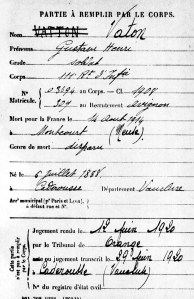 PARTIE À REMPLIR PAR LE CORPS.
Nom VATTON Vaton
Prénoms Gustave Henri
Grade soldat
Corps 111 Rt d'Infie
N° 03494 au Corps. — Cl. 1908
Matricule. 304 au Recrutement Avignon
Mort pour la France le 14 août 1914
à Moncourt (Meuse)
Genre de mort disparu
Né le 6 juillet 1888
à Caderousse Département Vaucluse
Arrt municipal (pr Paris et Lyon),
à défaut rue et N°.
Cette partie
n'est pas à remplir
par le Corps.
Jugement rendu le 12 Juin 1920
par le Tribunal de Orange
jugement transcrit le 29 Juin 1920
à Caderousse (Vaucluse)
N° du registre d'état civil